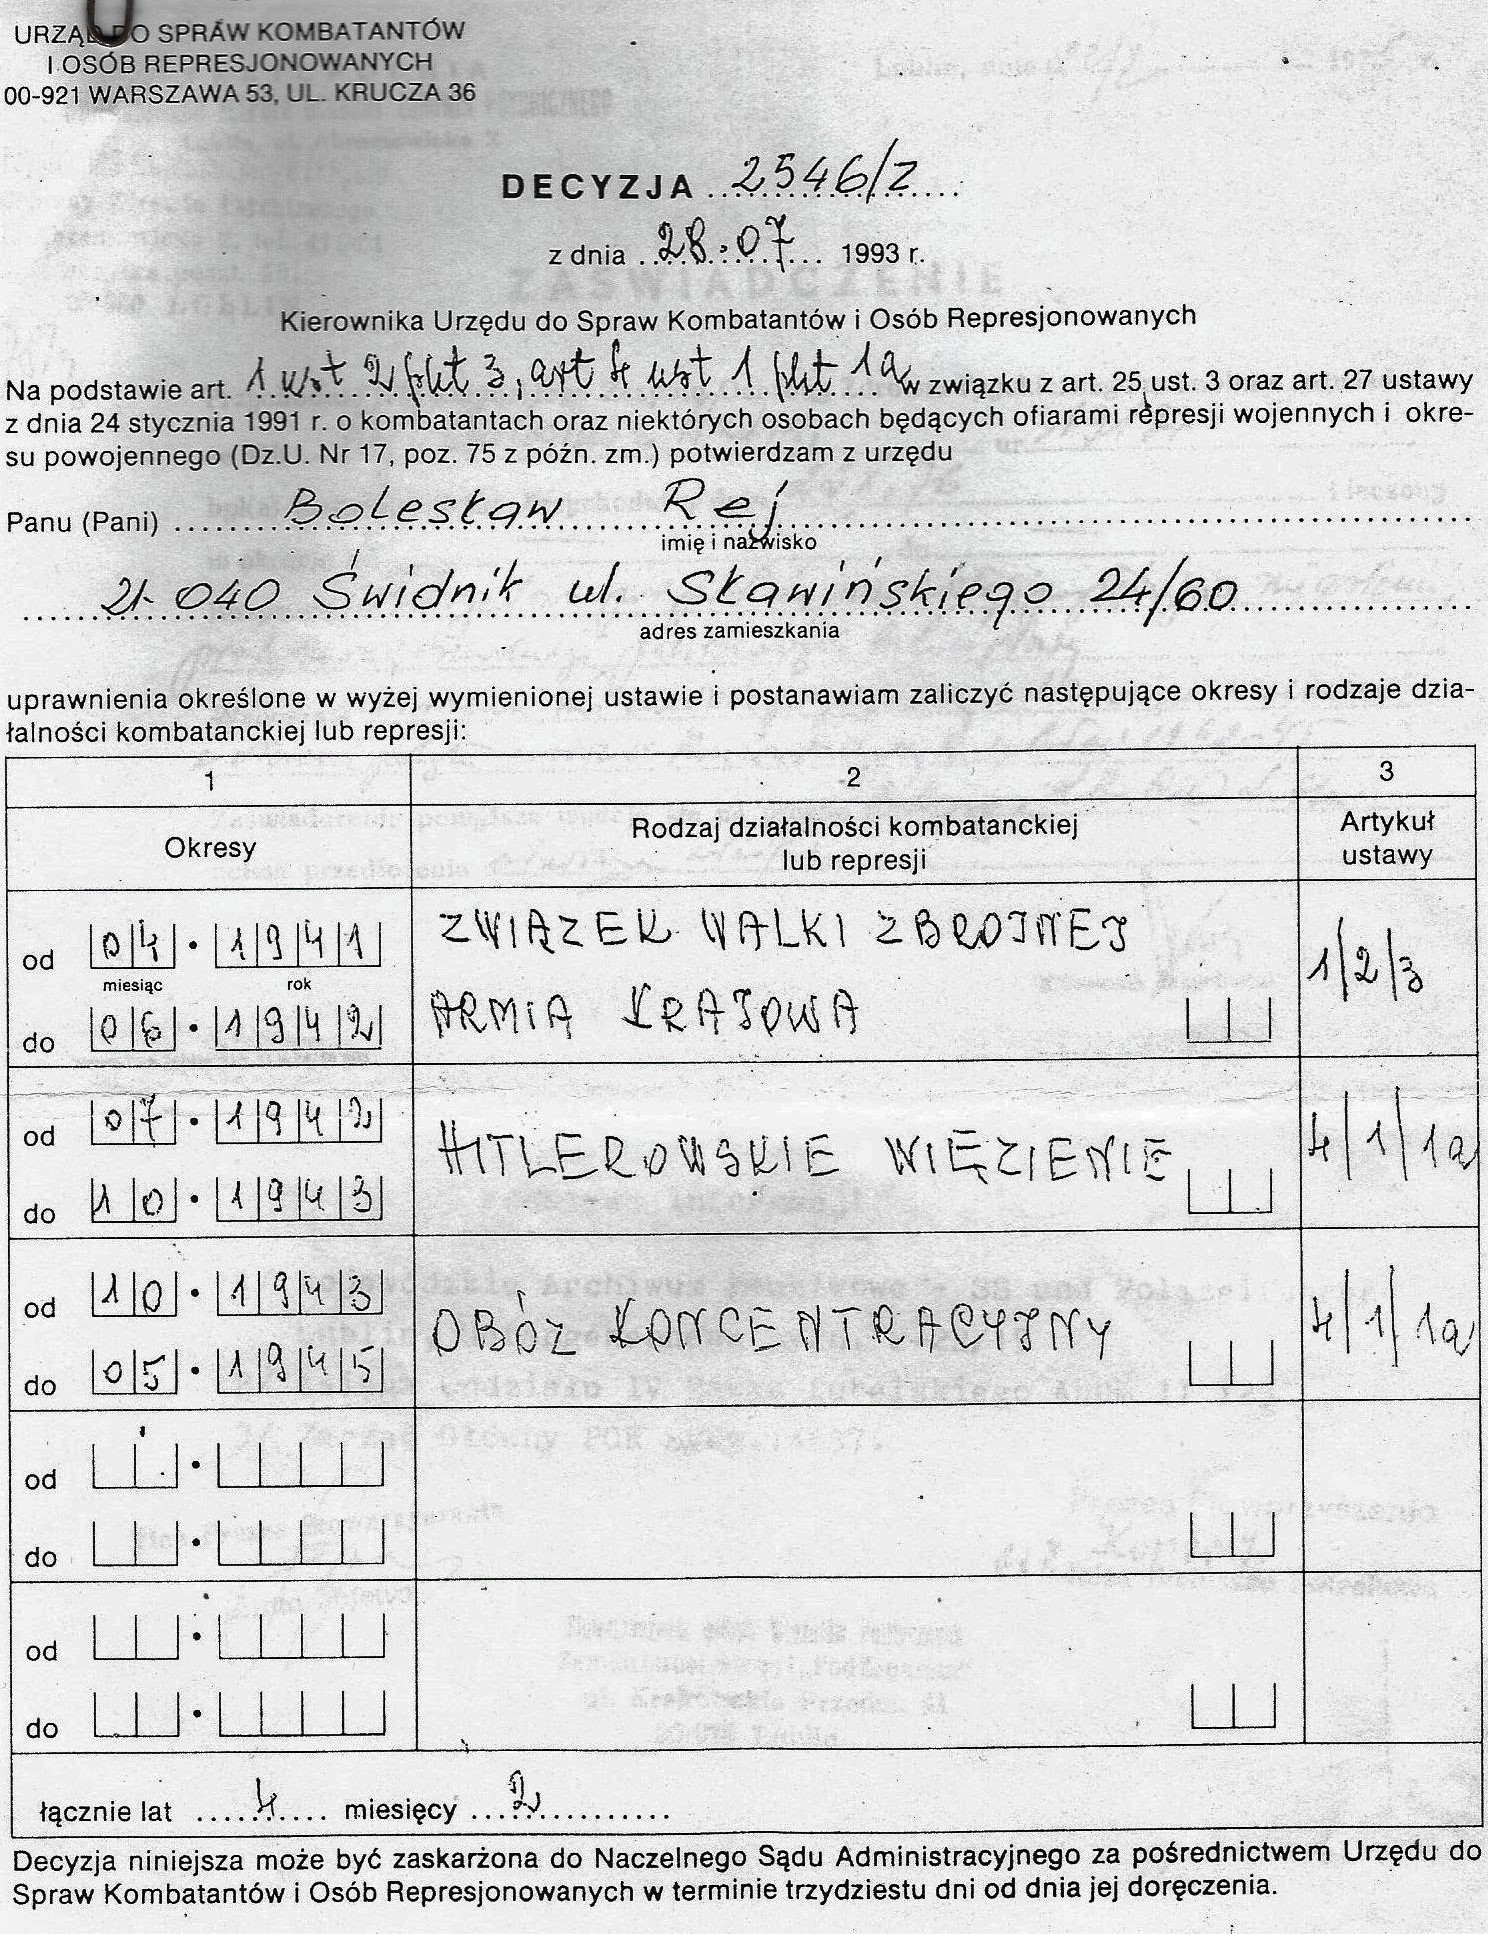 URZĄD DO SPRAW KOMBATANTÓW
I OSÓB REPRESJONOWANYCH
00-921 WARSZAWA 53, UL. KRUCZA 36
DECYZJA 2546/Z
z dnia 28.07 1993 r.
Kierownika Urzędu do Spraw Kombatantów i Osób Represjonowanych
Na podstawie art. 1 ust 2 pkt 3, art 4 ust 1 pkt 1a w związku z art. 25 ust. 3 oraz art. 27 ustawy
z dnia 24 stycznia 1991 r. o kombatantach oraz niektórych osobach będących ofiarami represji wojennych i okre-
su powojennego (Dz.U. Nr 17, poz. 75 z późn. zm.) potwierdzam z urzędu
Panu (Pani) Bolesław Rej
imię i nazwisko
21-040 Świdnik ul. Sławińskiego 24/60
adres zamieszkania
uprawnienia określone w wyżej wymienionej ustawie i postanawiam zaliczyć następujące okresy i rodzaje dzia-
łalności kombatanckiej lub represji:
1 2 3
Okresy Rodzaj działalności kombatanckiej lub represji Artykuł ustawy
od 04 • 1941 ZWIĄZEK WALKI ZBROJNEJ 1/2/3
miesiąc rok
do 06 • 1942 ARMIA KRAJOWA
od 07 • 1942 HITLEROWSKIE WIĘZIENIE 4/1/1a
do 10 • 1943
od 10 • 1943 OBÓZ KONCENTRACYJNY 4/1/1a
do 05 • 1945
od
do
od
do
łącznie lat 4 miesięcy 2
Decyzja niniejsza może być zaskarżona do Naczelnego Sądu Administracyjnego za pośrednictwem Urzędu do
Spraw Kombatantów i Osób Represjonowanych w terminie trzydziestu dni od dnia jej doręczenia.